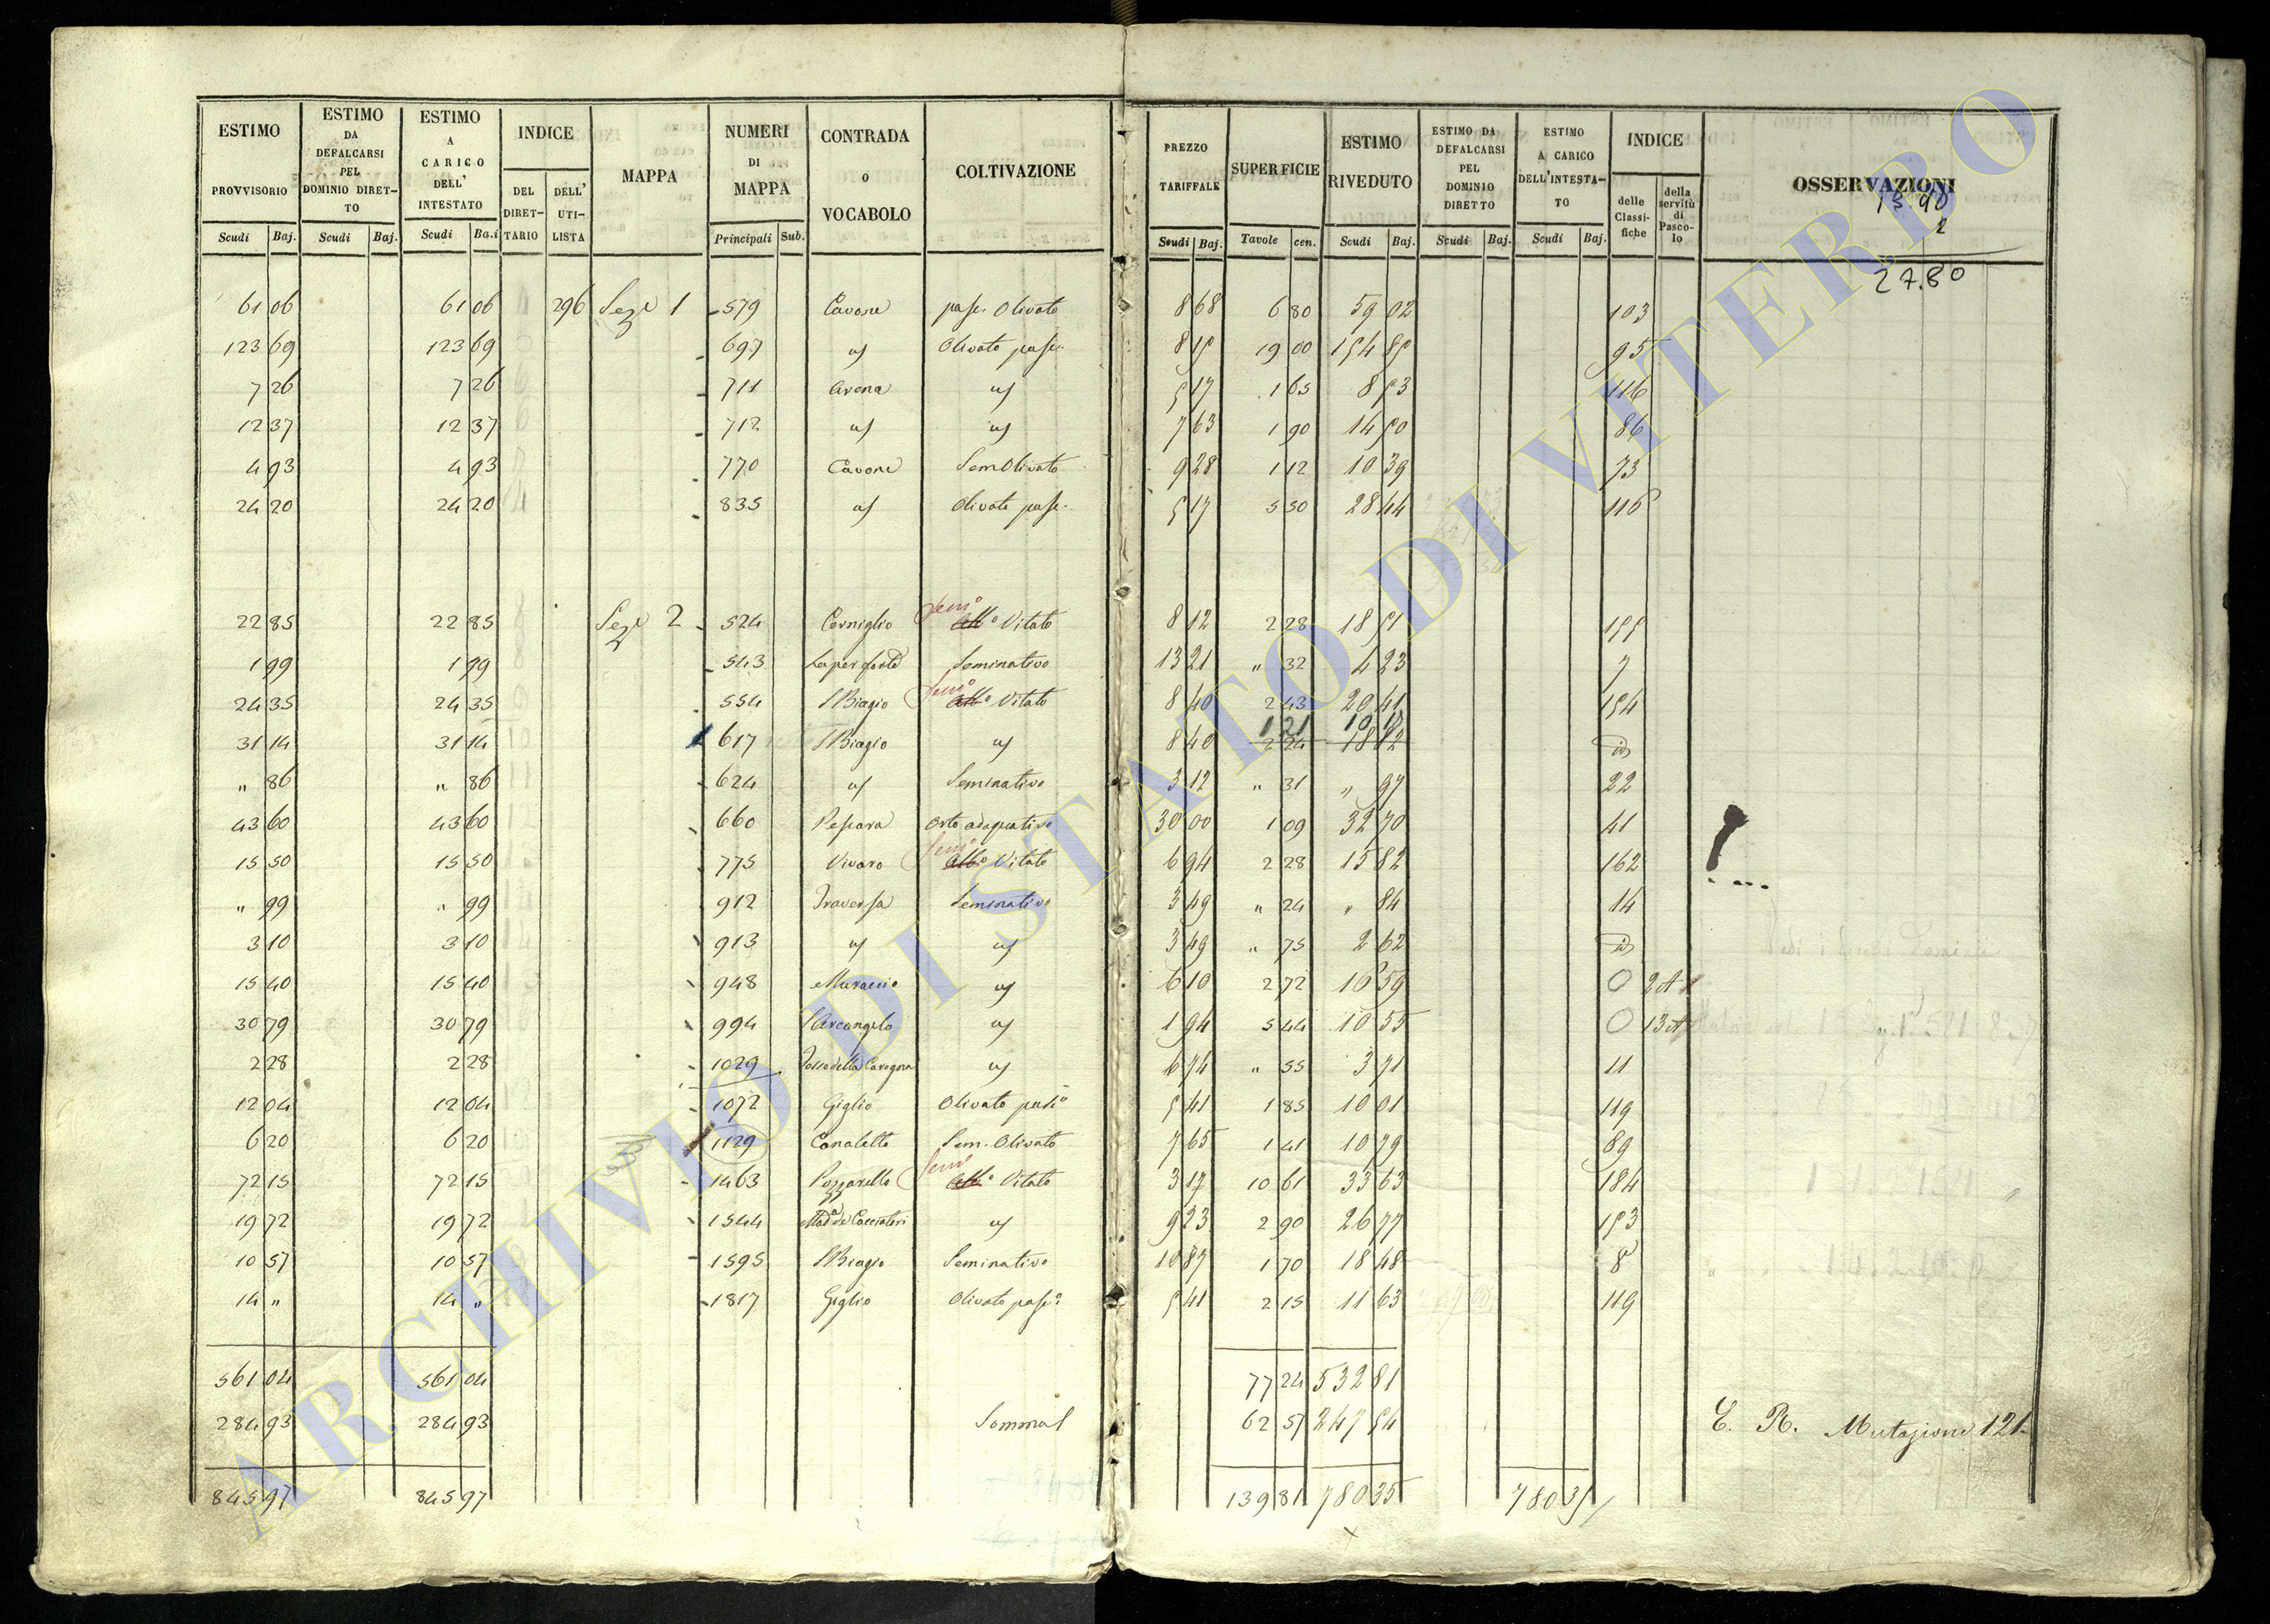 ESTIMO PROVVISORIO Scudi Baj.
ESTIMO DA DEFALCARSI PEL DOMINIO DIRETTO Scudi Baj.
ESTIMO A CARICO DELL' INTESTATO Scudi Ba.i
INDICE DEL DIRETTARIO DELL' UTILISTA
MAPPA
NUMERI DI MAPPA Principali Sub.
CONTRADA O VOCABOLO
COLTIVAZIONE
PREZZO TARIFFALE Scudi Baj.
SUPERFICIE Tavole cen.
ESTIMO RIVEDUTO Scudi Baj.
ESTIMO DA DEFALCARSI PEL DOMINIO DIRETTO Scudi Baj.
ESTIMO A CARICO DELL'INTESTATO Scudi Baj.
INDICE delle Classifiche della servitù di Pascolo
OSSERVAZIONI
13.90
2
27.80
61 06 61 06 296 Sez.e 1 579 Cavone pasc. Olivato 8 68 6 80 59 02 103
123 69 123 69 697 " Olivato pasc. 8 15 19 00 154 85 95
7 26 7 26 711 Arena " 5 17 1 65 8 53 116
12 37 12 37 712 " " 7 63 1 90 14 50 86
4 93 4 93 770 Cavone Sem Olivato 9 28 1 12 10 39 73
24 20 24 20 835 " Olivato pasc. 5 17 5 50 28 44 116
22 85 22 85 Sez.e 2 524 Corniglio Sem.o Vitato 8 12 2 28 18 51 155
1 99 1 99 543 Seminativo 13 21 " 32 4 23 7
24 35 24 35 554 S Biagio Sem.o Vitato 8 40 2 43 20 41 154
31 14 31 14 617 S Biagio " 8 40 2 24 1 21 18 82 10 17 id
" 86 " 86 624 " Seminativo 3 12 " 31 " 97 22
43 60 43 60 660 Pesciara Orto adaquativo 30 00 1 09 32 70 41
15 50 15 50 775 Vivaro Sem.o Vitato 6 94 2 28 15 82 162
" 99 " 99 912 Traversa Seminativo 3 49 " 24 " 84 14
3 10 3 10 913 " " 3 49 " 75 2 62 id
15 40 15 40 948 Muraccio " 6 10 2 72 16 59 0 2 A
30 79 30 79 994 S Arcangelo " 1 94 5 44 10 55 0 13 A
2 28 2 28 1029 Fosso della Carogna " 6 74 " 55 3 71 11
12 04 12 04 1072 Giglio Olivato pasc.o 5 41 1 85 10 01 119
6 20 6 20 1129 Canaletto Sem. Olivato 7 65 1 41 10 79 89
72 15 72 15 1463 Pozzarello Sem.o Vitato 3 17 10 61 33 63 184
19 72 19 72 1544 Mad.a de Cacciatori " 9 23 2 90 26 77 153
10 57 10 57 1595 S Biagio Seminativo 10 87 1 70 18 48 8
14 " 14 " 1817 Giglio Olivato pasc.o 5 41 2 15 11 63 119
561 04 561 04 77 24 532 81
284 93 284 93 Somma 62 57 247 54 E. R. Mutazione 121
845 97 845 97 139 81 780 35 780 35
ARCHIVIO DI STATO DI VITERBO